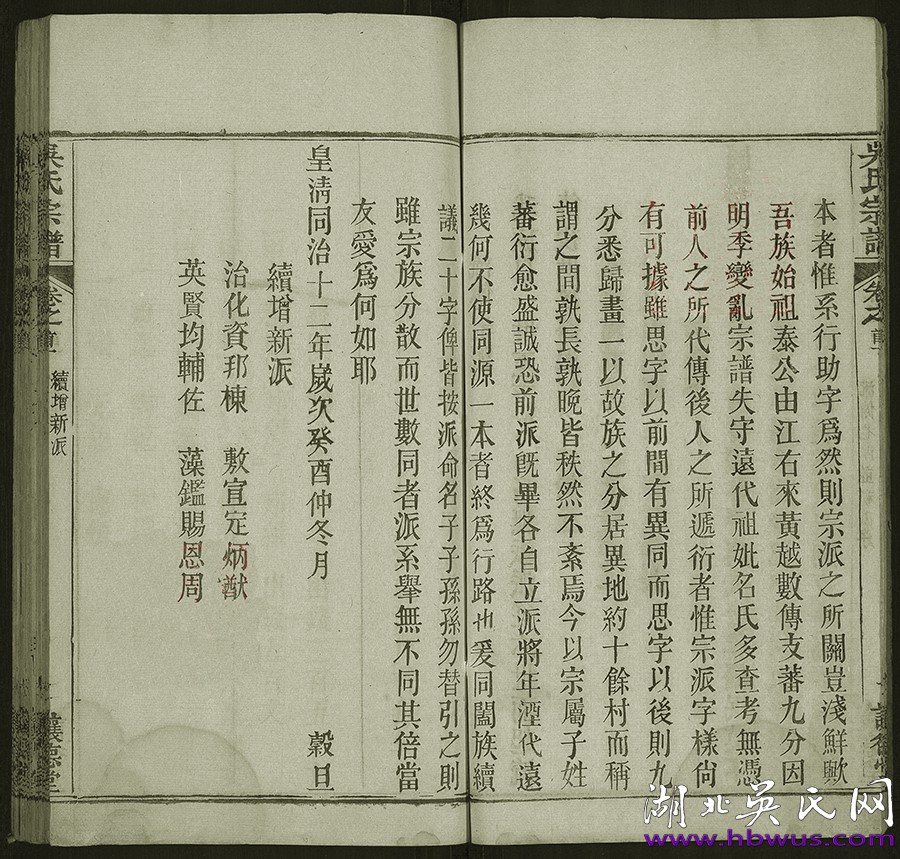 吳氏宗譜
卷之首
本者惟系行助字爲然則宗派之所關豈淺鮮歟
吾族始祖泰公由江右來黃越數傳支蕃九分因
明季變亂宗譜失守遠代祖妣名氏多查考無憑
前人之所代傳後人之所遞衍者惟宗派字樣尙
有可據雖思字以前間有異同而思字以後則九
分悉歸畫一以故族之分居異地約十餘村而稱
謂之間孰長孰晚皆秩然不紊焉今以宗屬子姓
蕃衍愈盛誠恐前派旣畢各自立派將年湮代遠
幾何不使同源一本者終爲行路也爰同闔族續
議二十字俾皆按派命名子子孫孫勿替引之則
雖宗族分散而世數同者派系舉無不同其倍當
友愛爲何如耶
皇淸同治十二年歲次癸酉仲冬月 穀旦
續增新派
治化資邦棟 敷宣定炳猷
英賢均輔佐 藻鑑賜恩周
吳氏宗譜
卷之首
續增新派
讓德堂
湖北吳氏网
www.hbwus.com